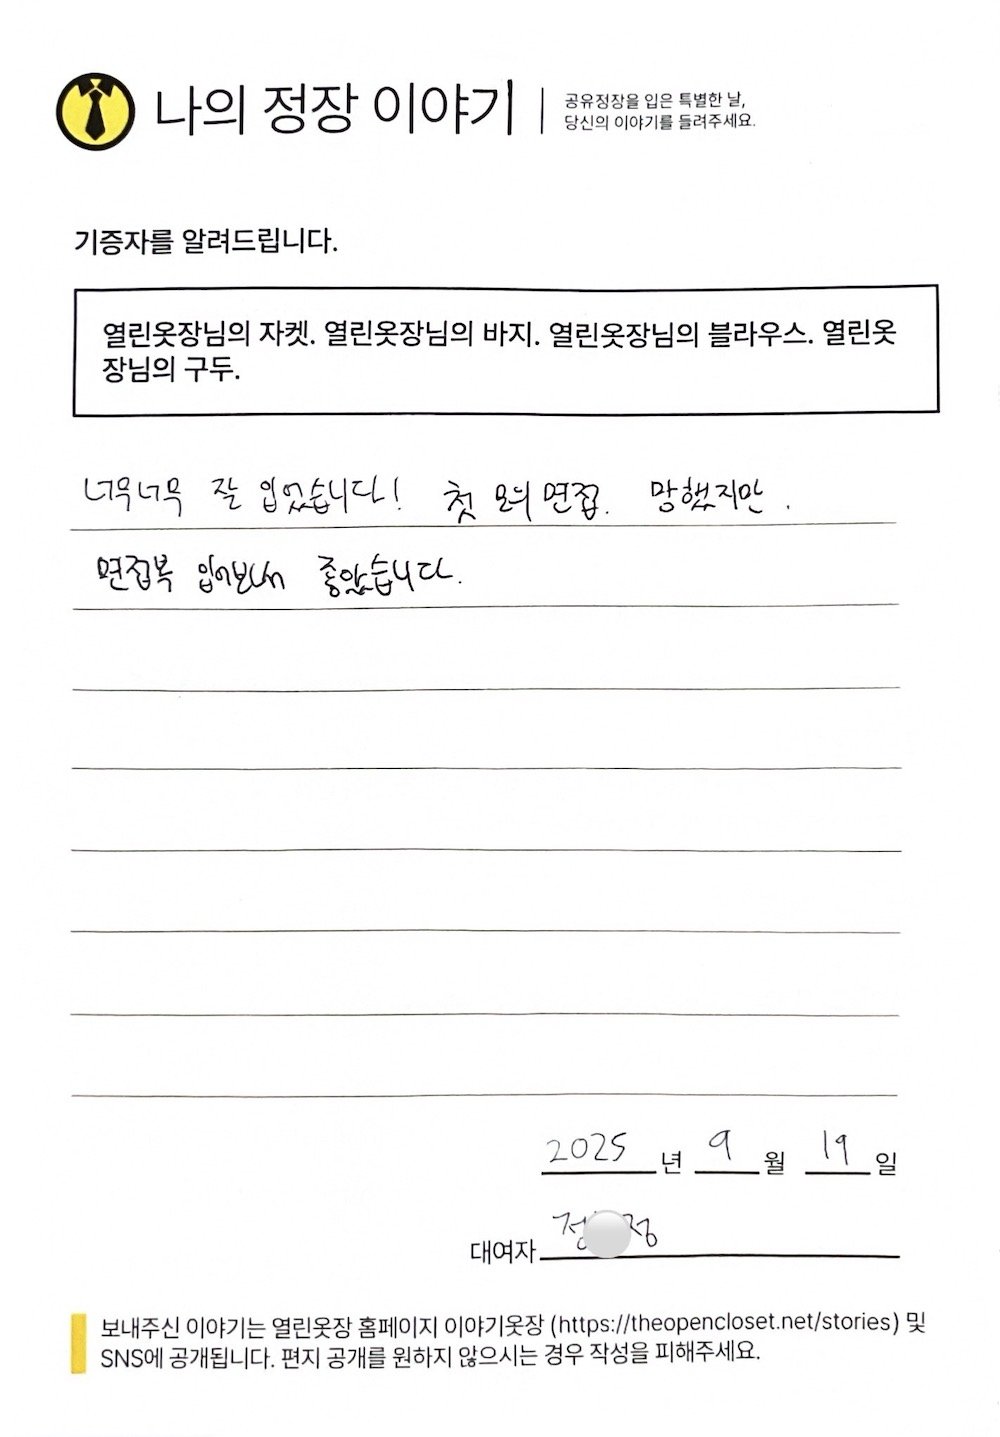 나의 정장 이야기
공유정장을 입은 특별한 날,
당신의 이야기를 들려주세요.
기증자를 알려드립니다.
열린옷장님의 자켓. 열린옷장님의 바지. 열린옷장님의 블라우스. 열린옷
장님의 구두.
너무너무 잘 입었습니다! 첫 모의 면접. 망했지만.
면접복 입어보내서 좋았습니다.
2025 년 9 월 19 일
대여자 정 정
보내주신 이야기는 열린옷장 홈페이지 이야기옷장 (https://theopencloset.net/stories) 및
SNS에 공개됩니다. 편지 공개를 원하지 않으시는 경우 작성을 피해주세요.